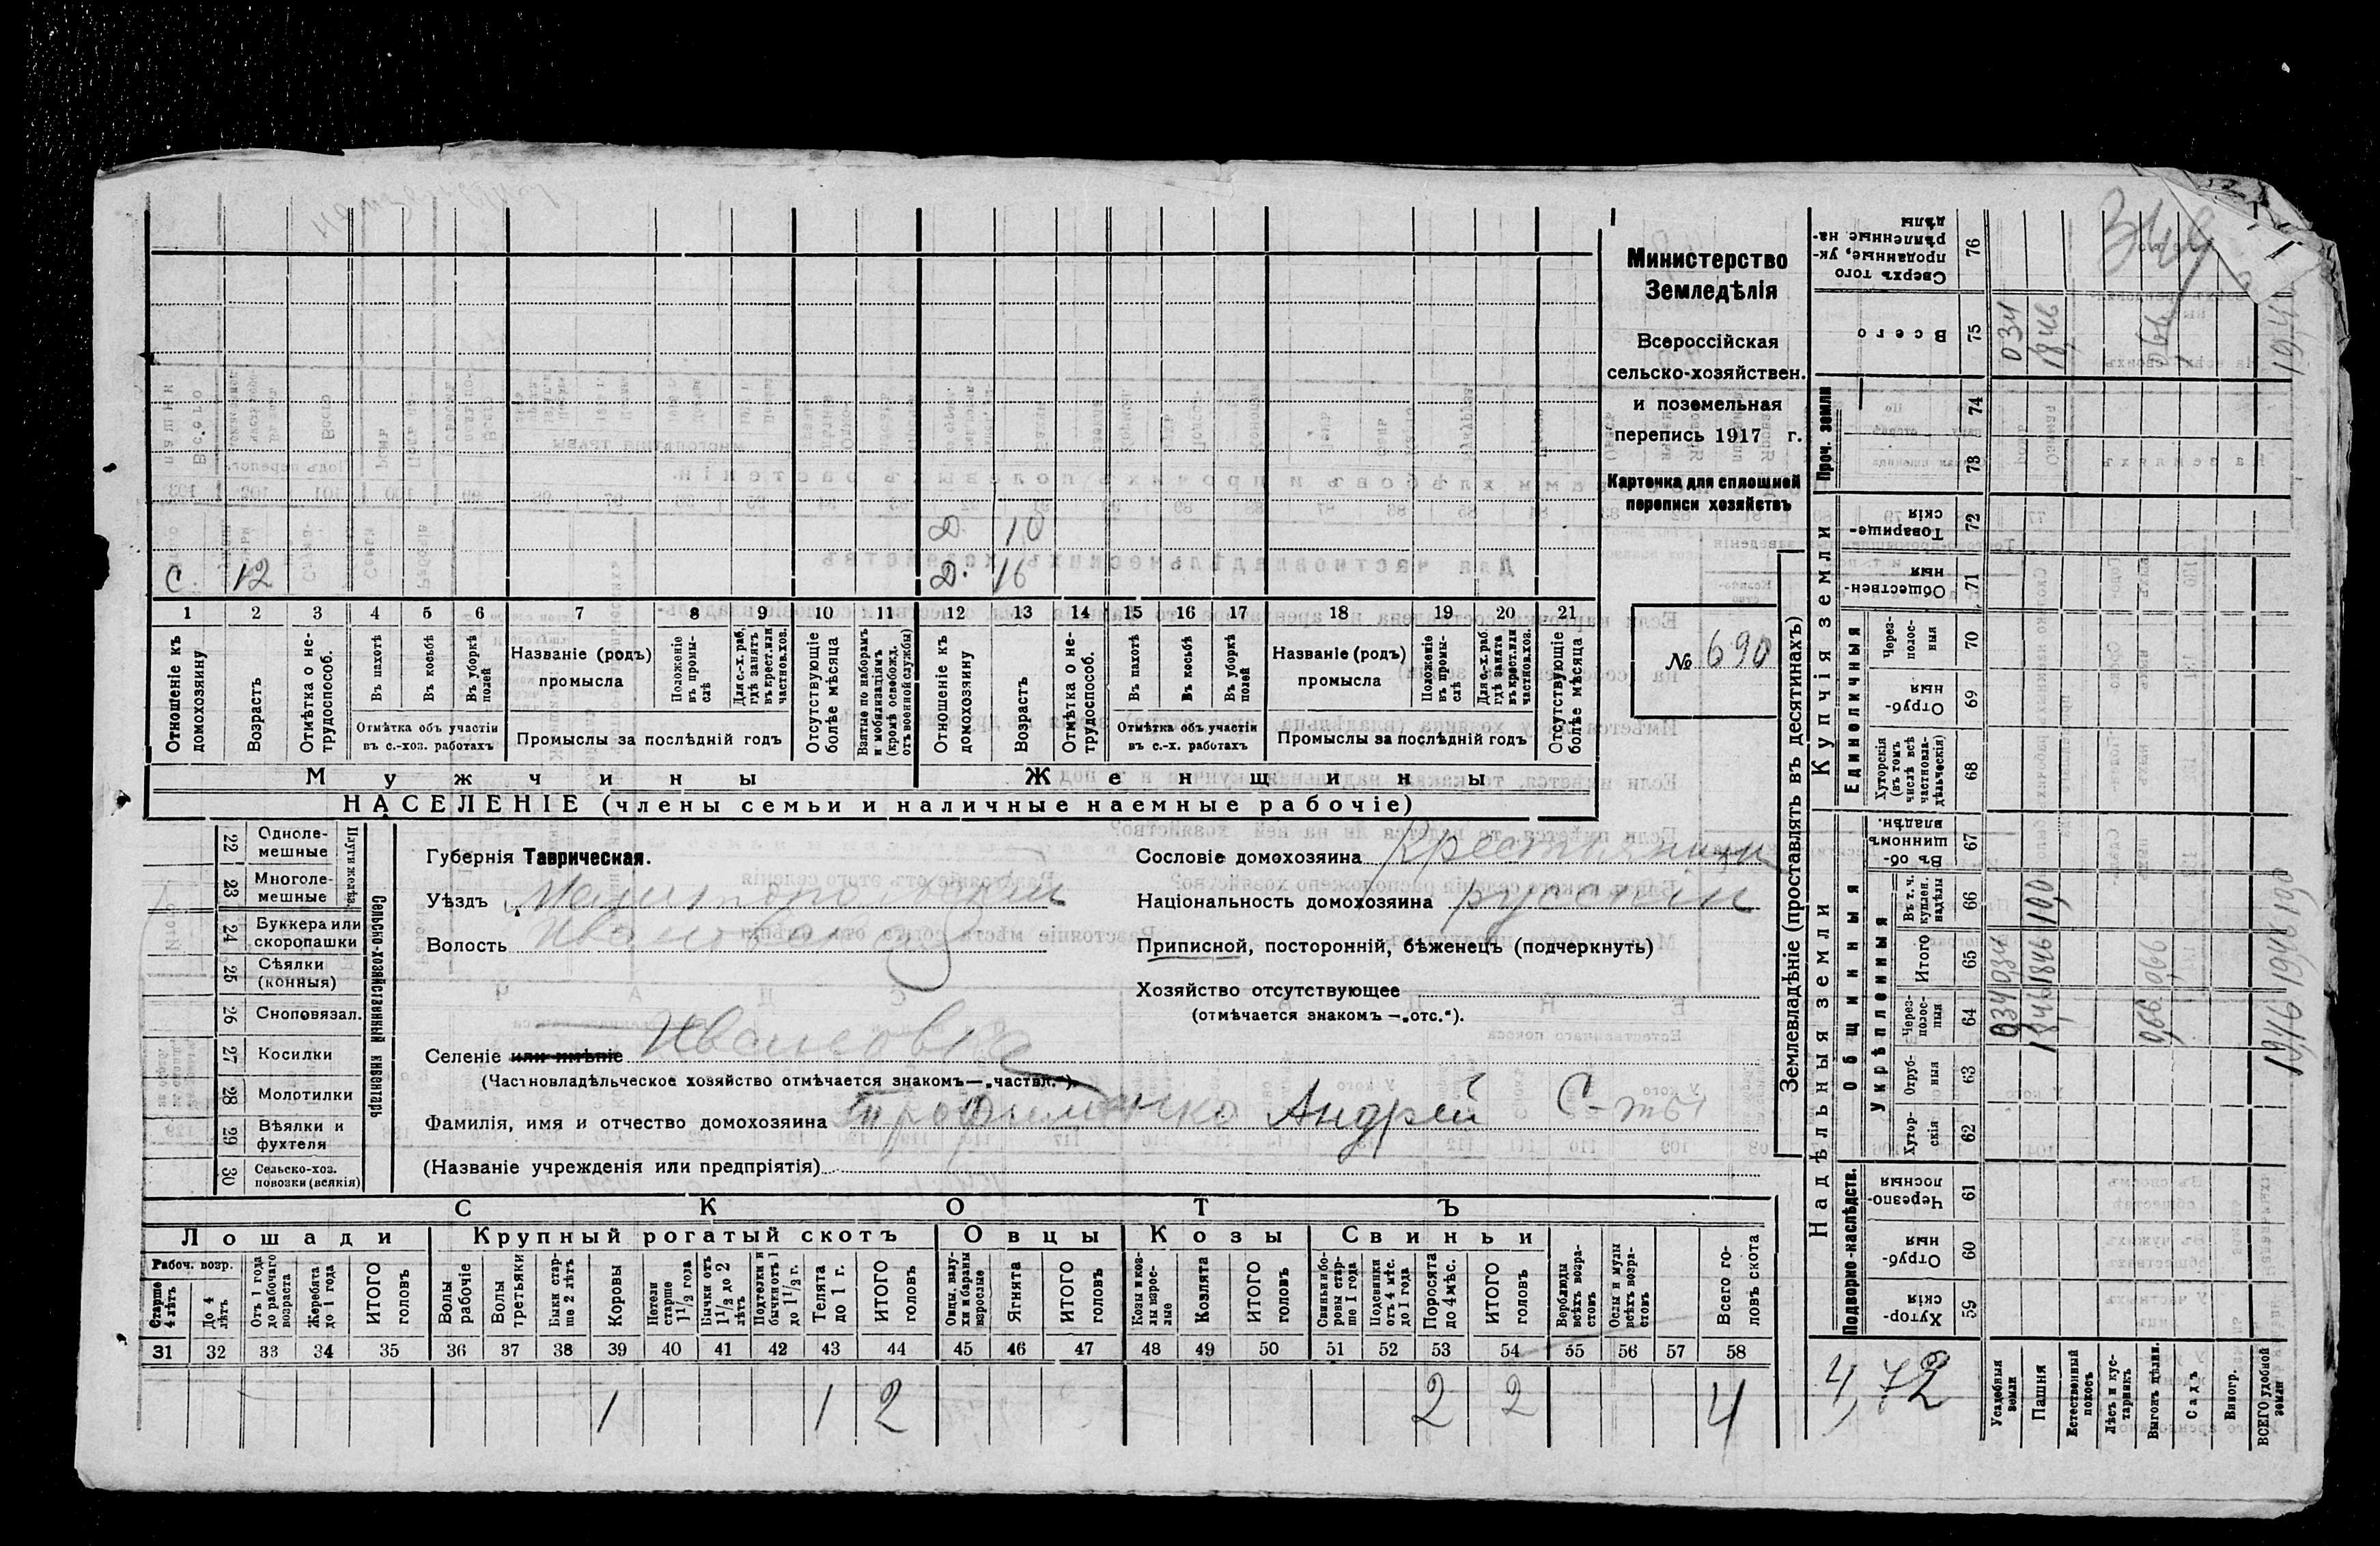 Д. 10
С. 12 Д. 16
1 2 3 4 5 6 7 8 9 10 11 12 13 14 15 16 17 18 19 20 21
Отношеніе къ домохозяину
Возрастъ
Отмѣтка о не-трудоспособ.
Въ пахотѣ
Въ косьбѣ
Въ уборкѣ полей
Отмѣтка объ участіи
въ с.-хоз. работахъ
Названіе (родъ)
промысла
Положеніе въ промы-слѣ
Для с.-х. раб. гдѣ занятъ въ крест. или частнов. хоз.
Промыслы за послѣдній годъ
Отсутствующіе болѣе мѣсяца
Взятые по наборамъ и мобилизаціямъ (кромѣ освобожд. отъ военной службы)
Отношеніе къ домохозяину
Возрастъ
Отмѣтка о не-трудоспособ.
Въ пахотѣ
Въ косьбѣ
Въ уборкѣ полей
Отмѣтка объ участіи
въ с.-х. работахъ
Названіе (родъ)
промысла
Положеніе въ промы-слѣ
Для с.-х. раб. гдѣ занята въ крест. или частнов. хоз.
Промыслы за послѣдній годъ
Отсутствующіе болѣе мѣсяца
Мужчины Женщины
НАСЕЛЕНІЕ (члены семьи и наличные наемные рабочіе)
Министерство
Земледѣлія
Всероссійская
сельско-хозяйствен.
и поземельная
перепись 1917 г.
Карточка для сплошной
переписи хозяйствъ
№ 690
22 Одноле-
мешные
23 Многоле-
мешные
Плуги желѣз.
24 Буккера или
скоропашки
25 Сѣялки
(конныя)
26 Сноповязал.
27 Косилки
28 Молотилки
29 Вѣялки и
фухтеля
30 Сельско-хоз.
повозки (всякія)
Сельско-хозяйственный инвентарь
Губернія Таврическая.
Уѣздъ Мелитопольскій
Волость
Селеніе или имѣніе Ивановка
(Частновладѣльческое хозяйство отмѣчается знакомъ—„частвл.“).
Фамилія, имя и отчество домохозяина Трофименко Андрей
(Названіе учрежденія или предпріятія)
Сословіе домохозяина
Національность домохозяина русскій
Приписной, посторонній, бѣженецъ (подчеркнуть)
Хозяйство отсутствующее
(отмѣчается знакомъ —„отс.“).
СКОТЪ
Лошади Крупный рогатый скотъ Овцы Козы Свиньи
Рабоч. возр.
Старше 4 лѣтъ
До 4 лѣтъ
Отъ 1 года до рабочаго возраста
Жеребята до 1 года
ИТОГО головъ
Волы рабочіе
Волы третьяки
Быки стар-ше 2 лѣтъ
Коровы
Нетели старше 1 1/2 года
Бычки отъ 1 1/2 до 2 лѣтъ
Подтелки и бычки отъ 1 до 1 1/2 г.
Телята до 1 г.
ИТОГО головъ
Овцы, валу-хи и бараны взрослые
Ягнята
ИТОГО головъ
Козы и коз-лы взрос-лые
Козлята
ИТОГО головъ
Свиньи и бо-ровы стар-ше 1 года
Подсвинки отъ 4 мѣс. до 1 года
Поросята до 4 мѣс.
ИТОГО головъ
Верблюды всѣхъ возра-стовъ
Ослы и мулы всѣхъ возра-стовъ
Всего го-ловъ скота
31 32 33 34 35 36 37 38 39 40 41 42 43 44 45 46 47 48 49 50 51 52 53 54 55 56 57 58
1 1 2 2 2 4
Землевладѣніе (проставлять въ десятинахъ)
Надѣльныя земли
Купчія земли
Проч. земли
Подворно-наслѣдств.
Общинныя
Укрѣпленныя
Единоличныя
Сверхъ того проданные, ук-рѣпленные на-дѣлы 76
Всего 75 034 18,46
74
73
Товарище-скія 72
Обществен-ныя 71
Через-полос-ныя 70
Отруб-ныя 69
Хуторскія (въ томъ числѣ всѣ частновла-дѣльческія) 68
Въ об-щинномъ владѣн. 67
Въ т. ч. куплен. надѣлы 66 10,0
Итого 65 034 1846 066
Через-полос-ныя 64 034 18,46
Отруб-ныя 63
Хутор-скія 62
Черезпо-лосныя 61
Отруб-ныя 60
Хутор-скія 59
4,72
Усадебныя земли
Пашня
Естественный покосъ
Лѣсъ и кус-тарникъ
Выгонъ цѣлин.
Садъ
Виногр.
ВСЕГО удобной земли
1946 1946 10,0